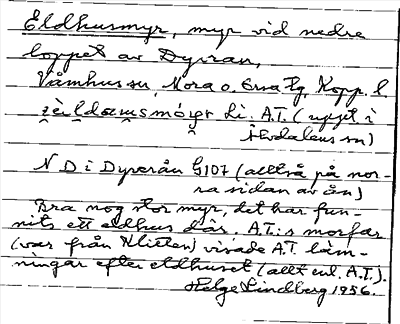 Eldhusmyr, myr vid nedre
loppet av Dyvran,
Våmhus sn, Mora o. Orsa tg, Kopp. l.
Li. A.T. (uppt i
Älvdalens sn)
N D i Dyverån G107 (alltså på nor-
ra sidan av ån)
Bra nog stor myr, det har fun-
nits ett eldhus där. A.T:s morfar
(var från Kliten) visade A.T. läm-
ningar efter eldhuset (allt enl. A.T.).
Helge Lindberg 1956.